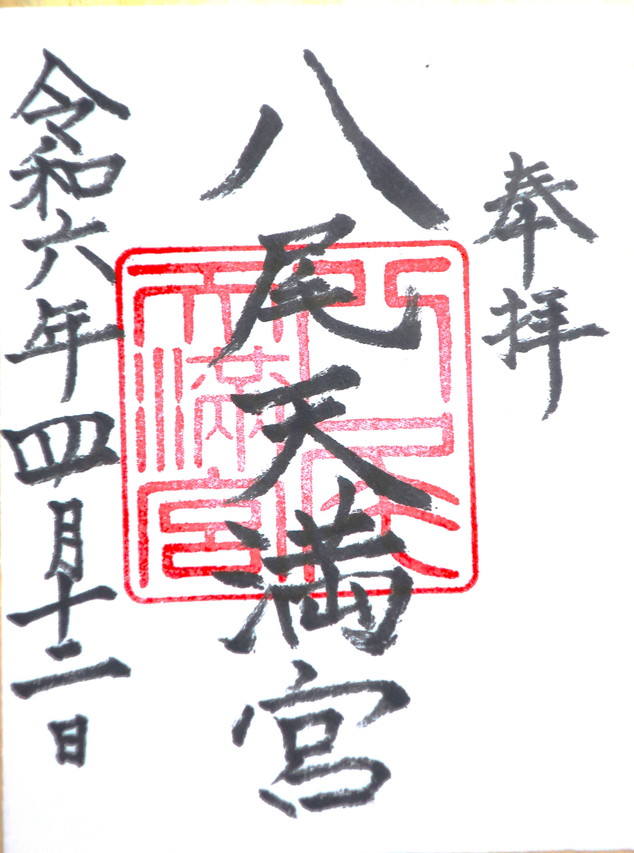 奉拝
八尾天満宮
令和六年四月十二日